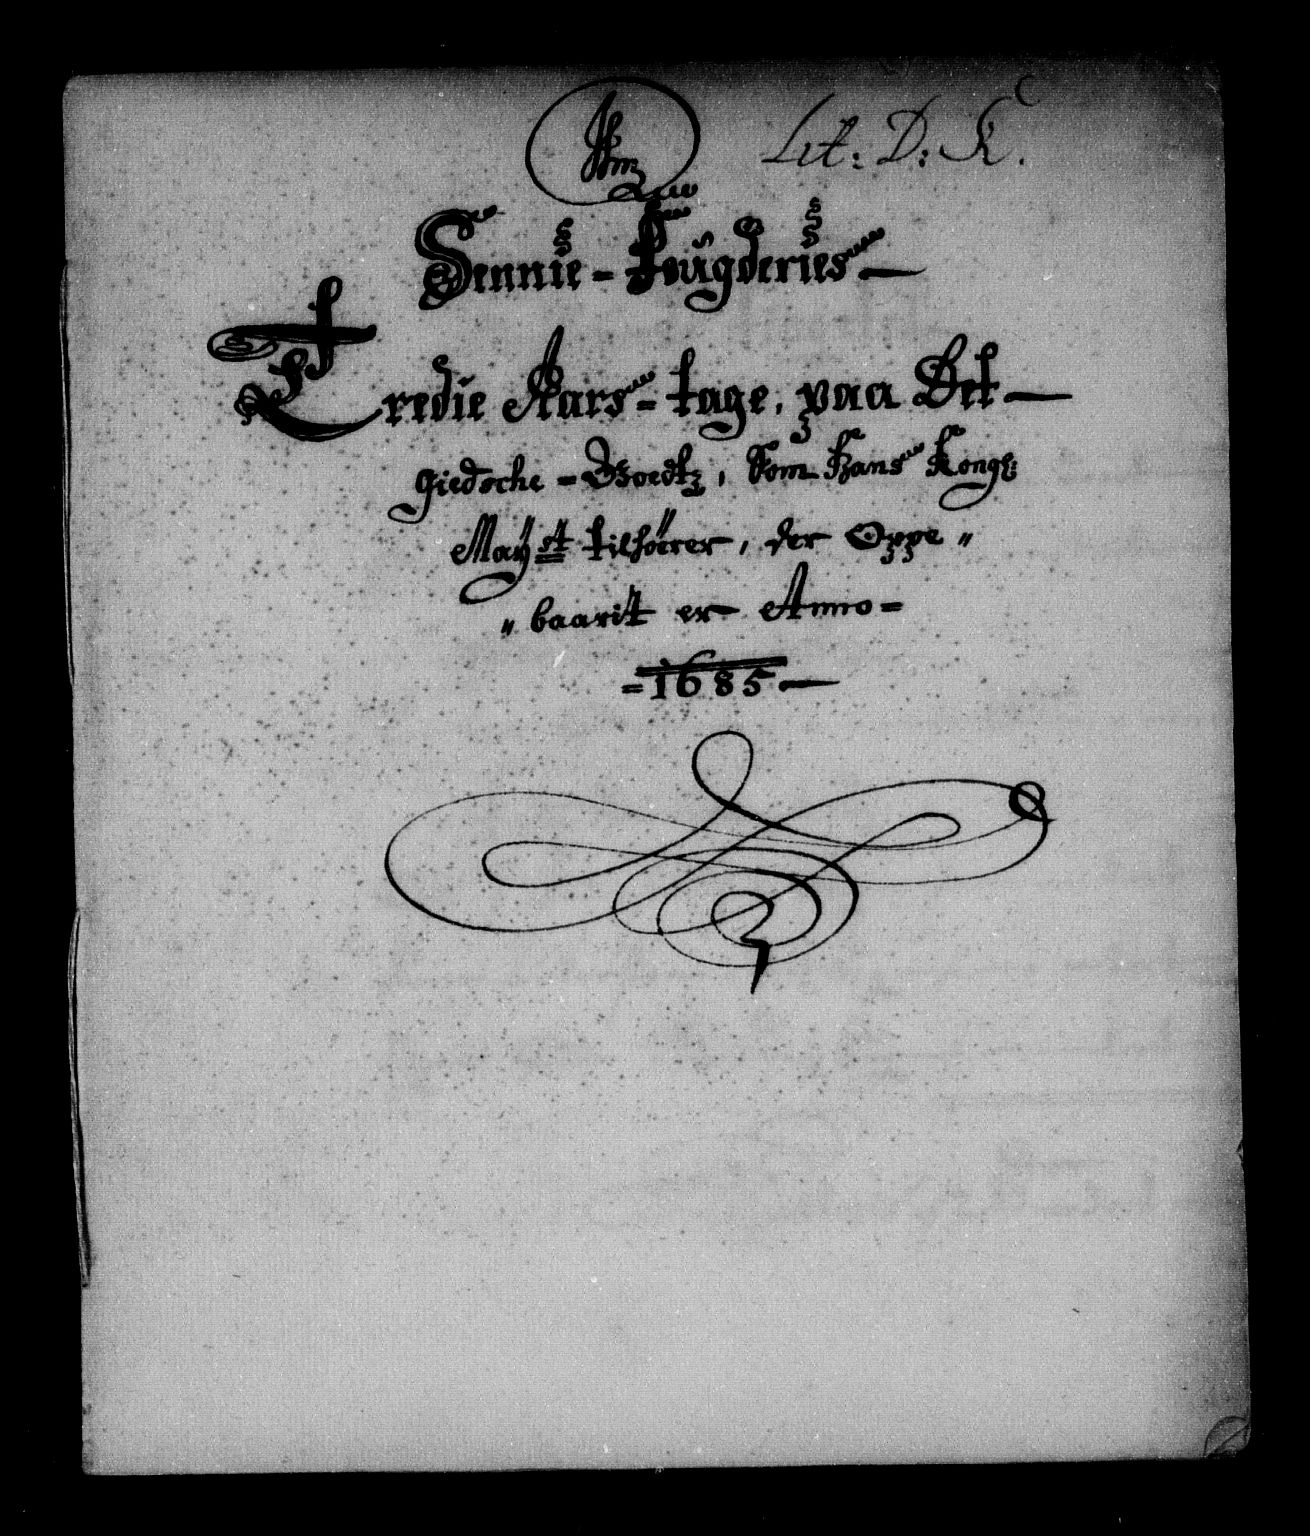 Lit: D: K.
Sennie-Fougderies
Tredie Aars-tage, paa Det
giedsche-Goedtz, Som Hans Kongl:
Maÿst tilhörer, der Oppe "
" baarit er Anno =
= 1685